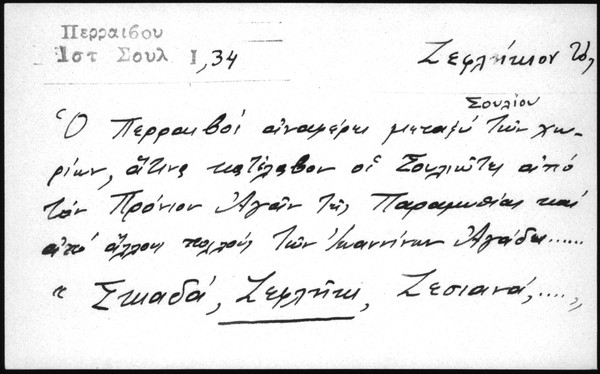 Περραιβου
Ιστ Σουλ Ι, 34
Ζεφλήκιον το,
Σουλίου
Ὁ Περραιβός ἀναφέρει μεταξύ τῶν χω-
ρίων, ἅτινα κατέλαβον οἱ Σουλιῶται ἀπό
τόν Πρόνιον Ἀγᾶν τῆς Παραμυθίας καί
ἀπό ἄλλους πολλούς τῶν Ἰωαννίνων Ἀγάδες......
" Σκιαδά, Ζεφλήκι, Ζεσιανά,....,,